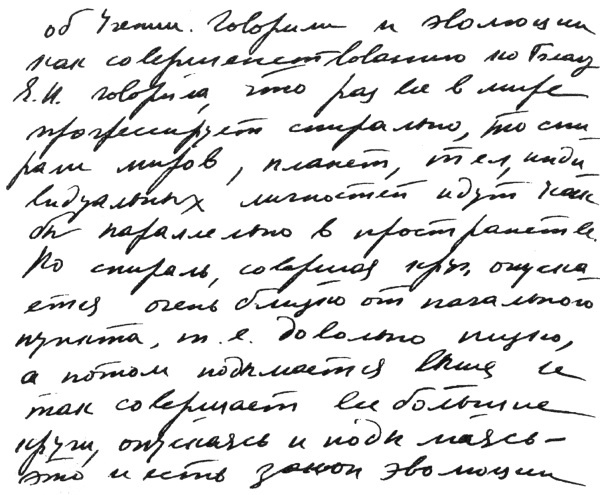 об Учении. Говорили и эволюции
как совершенствованию по Благу
Е.И. говорила, что раз все в мире
прогрессирует спирально, то спи
рали миров, планет, тел, инди
видуальных личностей идут как
бы параллельно в пространстве.
Но спираль, совершая круг, опуска
ется очень близко от начального
пункта, т.е. довольно низко,
а потом подымается выше и
так совершает все большие
круги, опускаясь и подымаясь –
это и есть закон эволюции